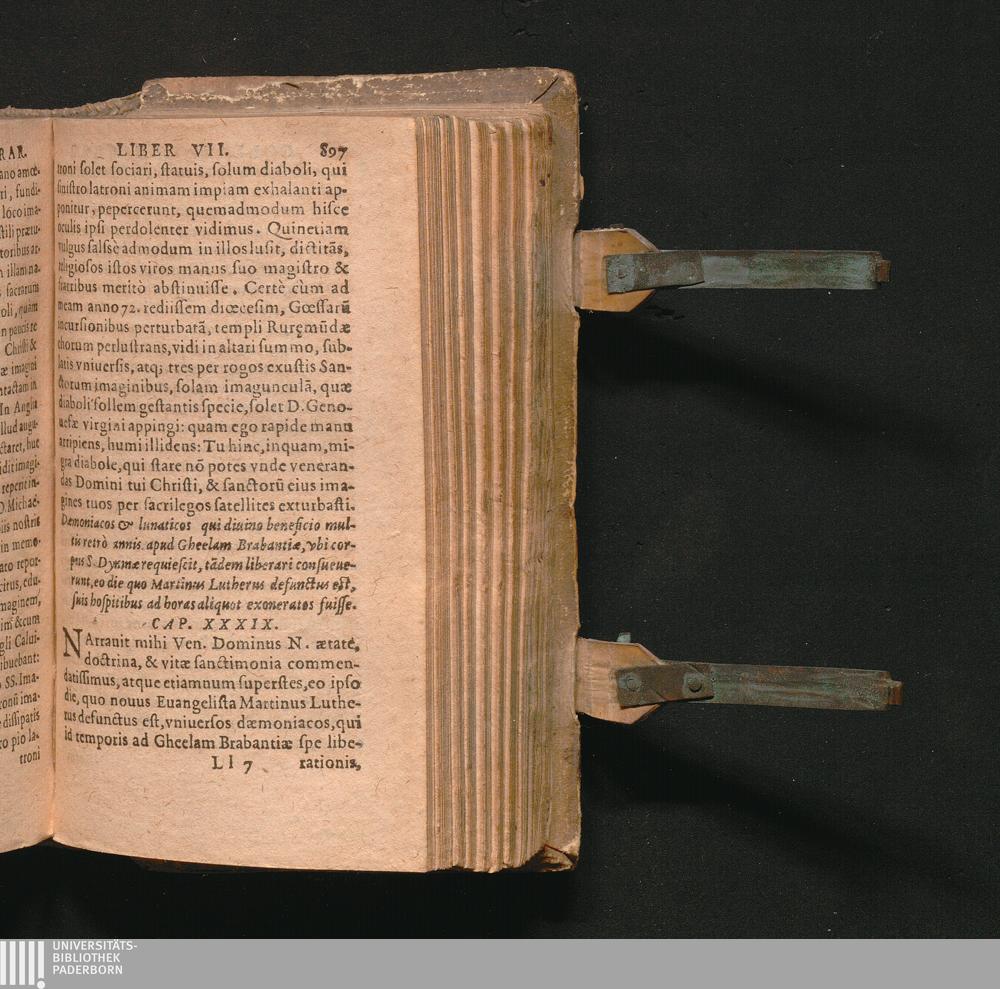 RAR.
ano amœ-
ri, fundi-
lóco ima-
stili prætu-
toribus ar-
illam na-
sacrarum
oli, quàm
n paucis re
Christi &
æ imagini
ntactam in
In Anglia
llud augu-
ctaret, huc
idit imagi-
repentin-
D. Michaë-
iis nostris
in memo-
ato repor-
citus, edu-
maginem,
im & cum
gli Calui-
ibuebant:
SS. Ima-
conū ima-
dissipatis
to pio la-
troni
LIBER VII. 897
troni solet sociari, statuis, solum diaboli, qui
sinistro latroni animam impiam exhalanti ap-
ponitur, pepercerunt, quemadmodum hisce
oculis ipsi perdolenter vidimus. Quinetiam
vulgus salsè admodum in illos lusit, dictitās,
religiosos istos viros manus suo magistro &
fratribus meritò abstinuisse. Certè cùm ad
meam anno 72. rediissem diœcesim, Gœssarū
incursionibus perturbatā, templi Rurẹmūdæ
chorum perlustrans, vidi in altari summo, sub-
latis vniuersis, atq; tres per rogos exustis San-
ctorum imaginibus, solam imagunculā, quæ
diaboli follem gestantis specie, solet D. Geno-
uefæ virgini appingi: quam ego rapide manu
arripiens, humi illidens: Tu hinc, inquam, mi-
gra diabole, qui stare nō potes vnde veneran-
das Domini tui Christi, & sanctorū eius ima-
gines tuos per sacrilegos satellites exturbasti.
Dæmoniacos & lunaticos qui diuino beneficio mul-
tis retrò annis apud Gheelam Brabantiæ, vbi cor-
pus S. Dymnæ requiescit, tādem liberari consueue-
runt, eo die quo Martinus Lutherus defunctus est,
suis hospitibus ad horas aliquot exoneratos fuisse.
CAP. XXXIX.
NArrauit mihi Ven. Dominus N. ætate,
doctrina, & vitæ sanctimonia commen-
datissimus, atque etiamnum superstes, eo ipso
die, quo nouus Euangelista Martinus Luthe-
rus defunctus est, vniuersos dæmoniacos, qui
id temporis ad Gheelam Brabantiæ spe libe-
Ll 7 rationis,
UNIVERSITÄTS-
BIBLIOTHEK
PADERBORN